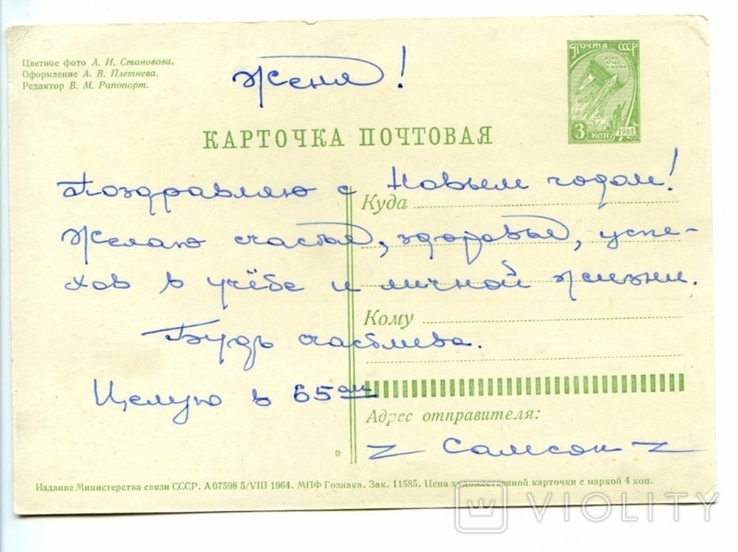 Цветное фото А. И. Становова.
Оформление А. В. Плетнева.
Редактор В. М. Рапопорт.
Почта СССР
3 коп
1961
Женя!
КАРТОЧКА ПОЧТОВАЯ
Поздравляю с Новым годом!
Куда
Желаю счастья, здоровья, успе-
хов в учёбе и личной жизни.
Кому
Будь счастлива.
Целую в 65ом
Адрес отправителя:
Самсон
Издание Министерства связи СССР. А 07598 5/VIII 1964. МПФ Гознака. Зак. 11585. Цена художественной карточки с маркой 4 коп.
VIOLITY